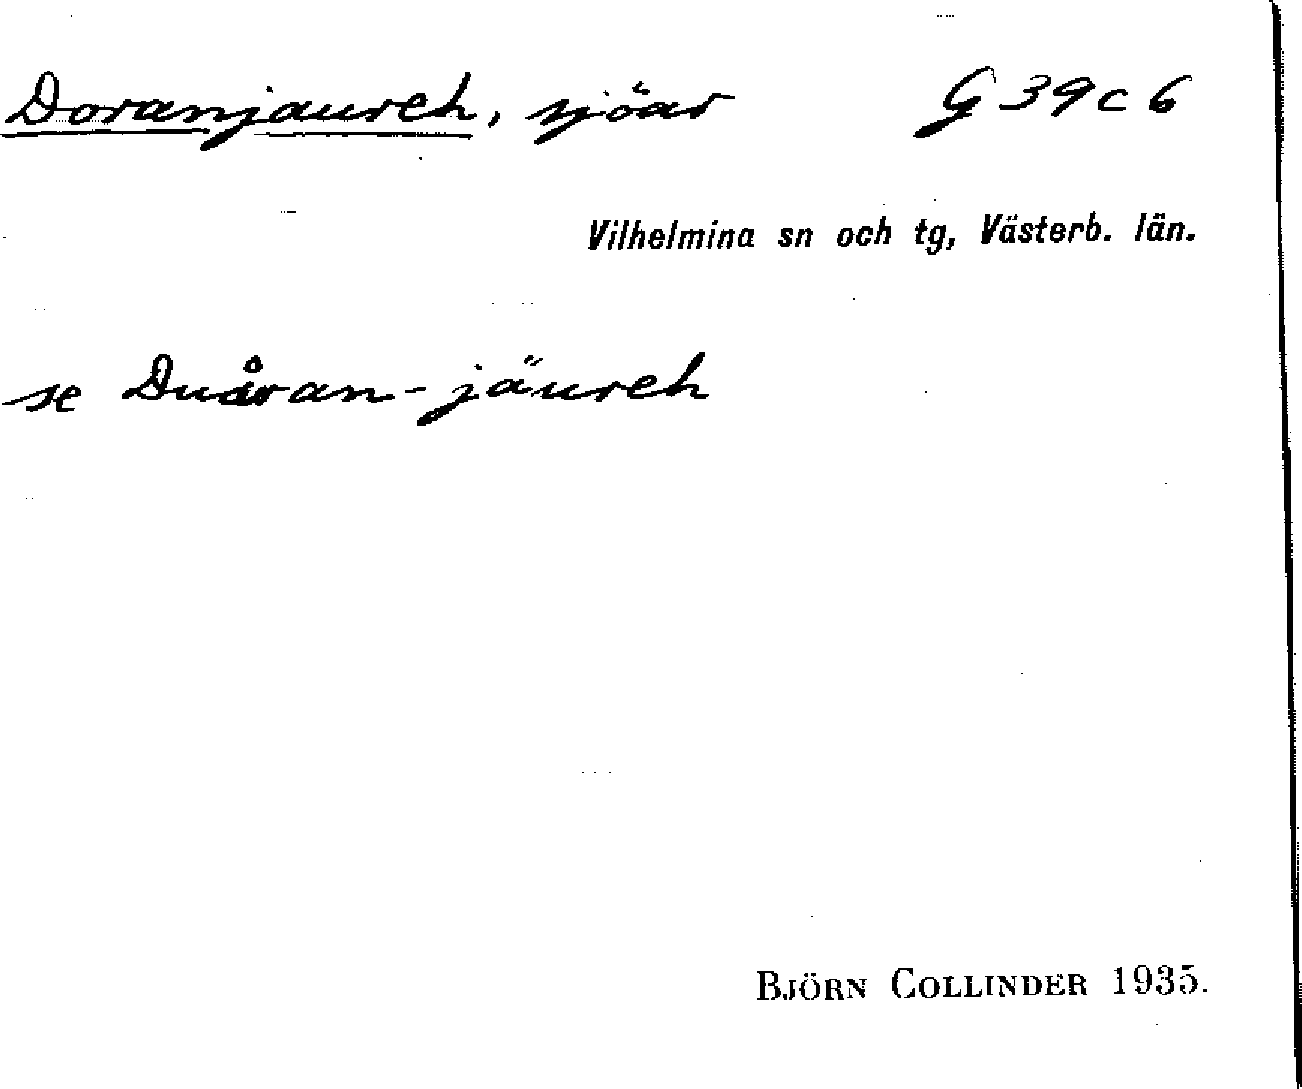 Doranjaureh, sjöar G 39 c 6
Vilhelmina sn och tg, Västerb. län.
se Duåran-jäureh
BJÖRN COLLINDER 1935.